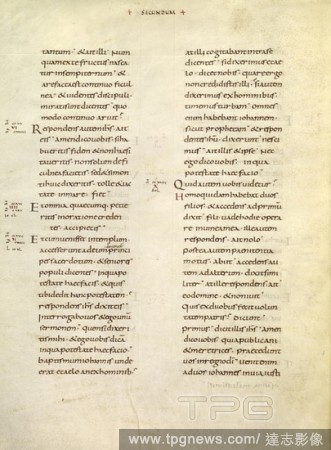 SECUNDUM
tantum & ait illi Num
quam ex te fructus nasca
tur in sempiternum &
arefacta est continuo ficul
nea & videntes discipuli
mirati sunt dicentes quo
modo continuo aruit
Respondens autem ihs ait
eis amen dico vobis si ha
bueritis fidem & non hesi
taveritis non solum de fi
culnea facietis sed & si mon
ti huic dixeritis tolle & iac
ta te in mare fiet
Et omnia quaecumq; petie
ritis in oratione creden
tes accipietis
Et cum venisset in templum
accesserunt ad eum prin
cipes sacerdotum & seniores
populi dicentes in qua po
testate haec facis & quis
tibi dedit hanc potestatem
respondens ihs dixit eis
Interrogabo vos & ego unum
sermonem quem si dixeri
tis mihi & ego vobis dicam
in qua potestate haec facio
baptismum iohannis unde
erat e caelo an ex hominib;
at illi cogitabant intra se
dicentes si dixerimus e cae
lo dicet nobis quare ergo
non credidistis illi si autem
dixerimus ex hominibus
timemus turbam omnes
enim habebant iohannem
sicut prophetam & respon
dentes ihu dixerunt nesci
mus ait illis & ipse nec
ego dico vobis in qua
potestate haec facio
Quid autem vobis videtur
Homo quidam habebat duos
filios & accedens ad primum
dixit fili vade hodie opera
re in vinea mea ille autem
respondens ait nolo
postea autem paenitentia
motus abiit accedens au
tem ad alterum dixit simi
liter at ille respondens ait
eo domine & non ivit
Quis ex duobus fecit volun
tatem patris dicunt
primus dicit illis ihs Amen
dico vobis quia publicani
& meretrices praecedunt
vos
TPG
www.tpgnews.com/ 達志影像